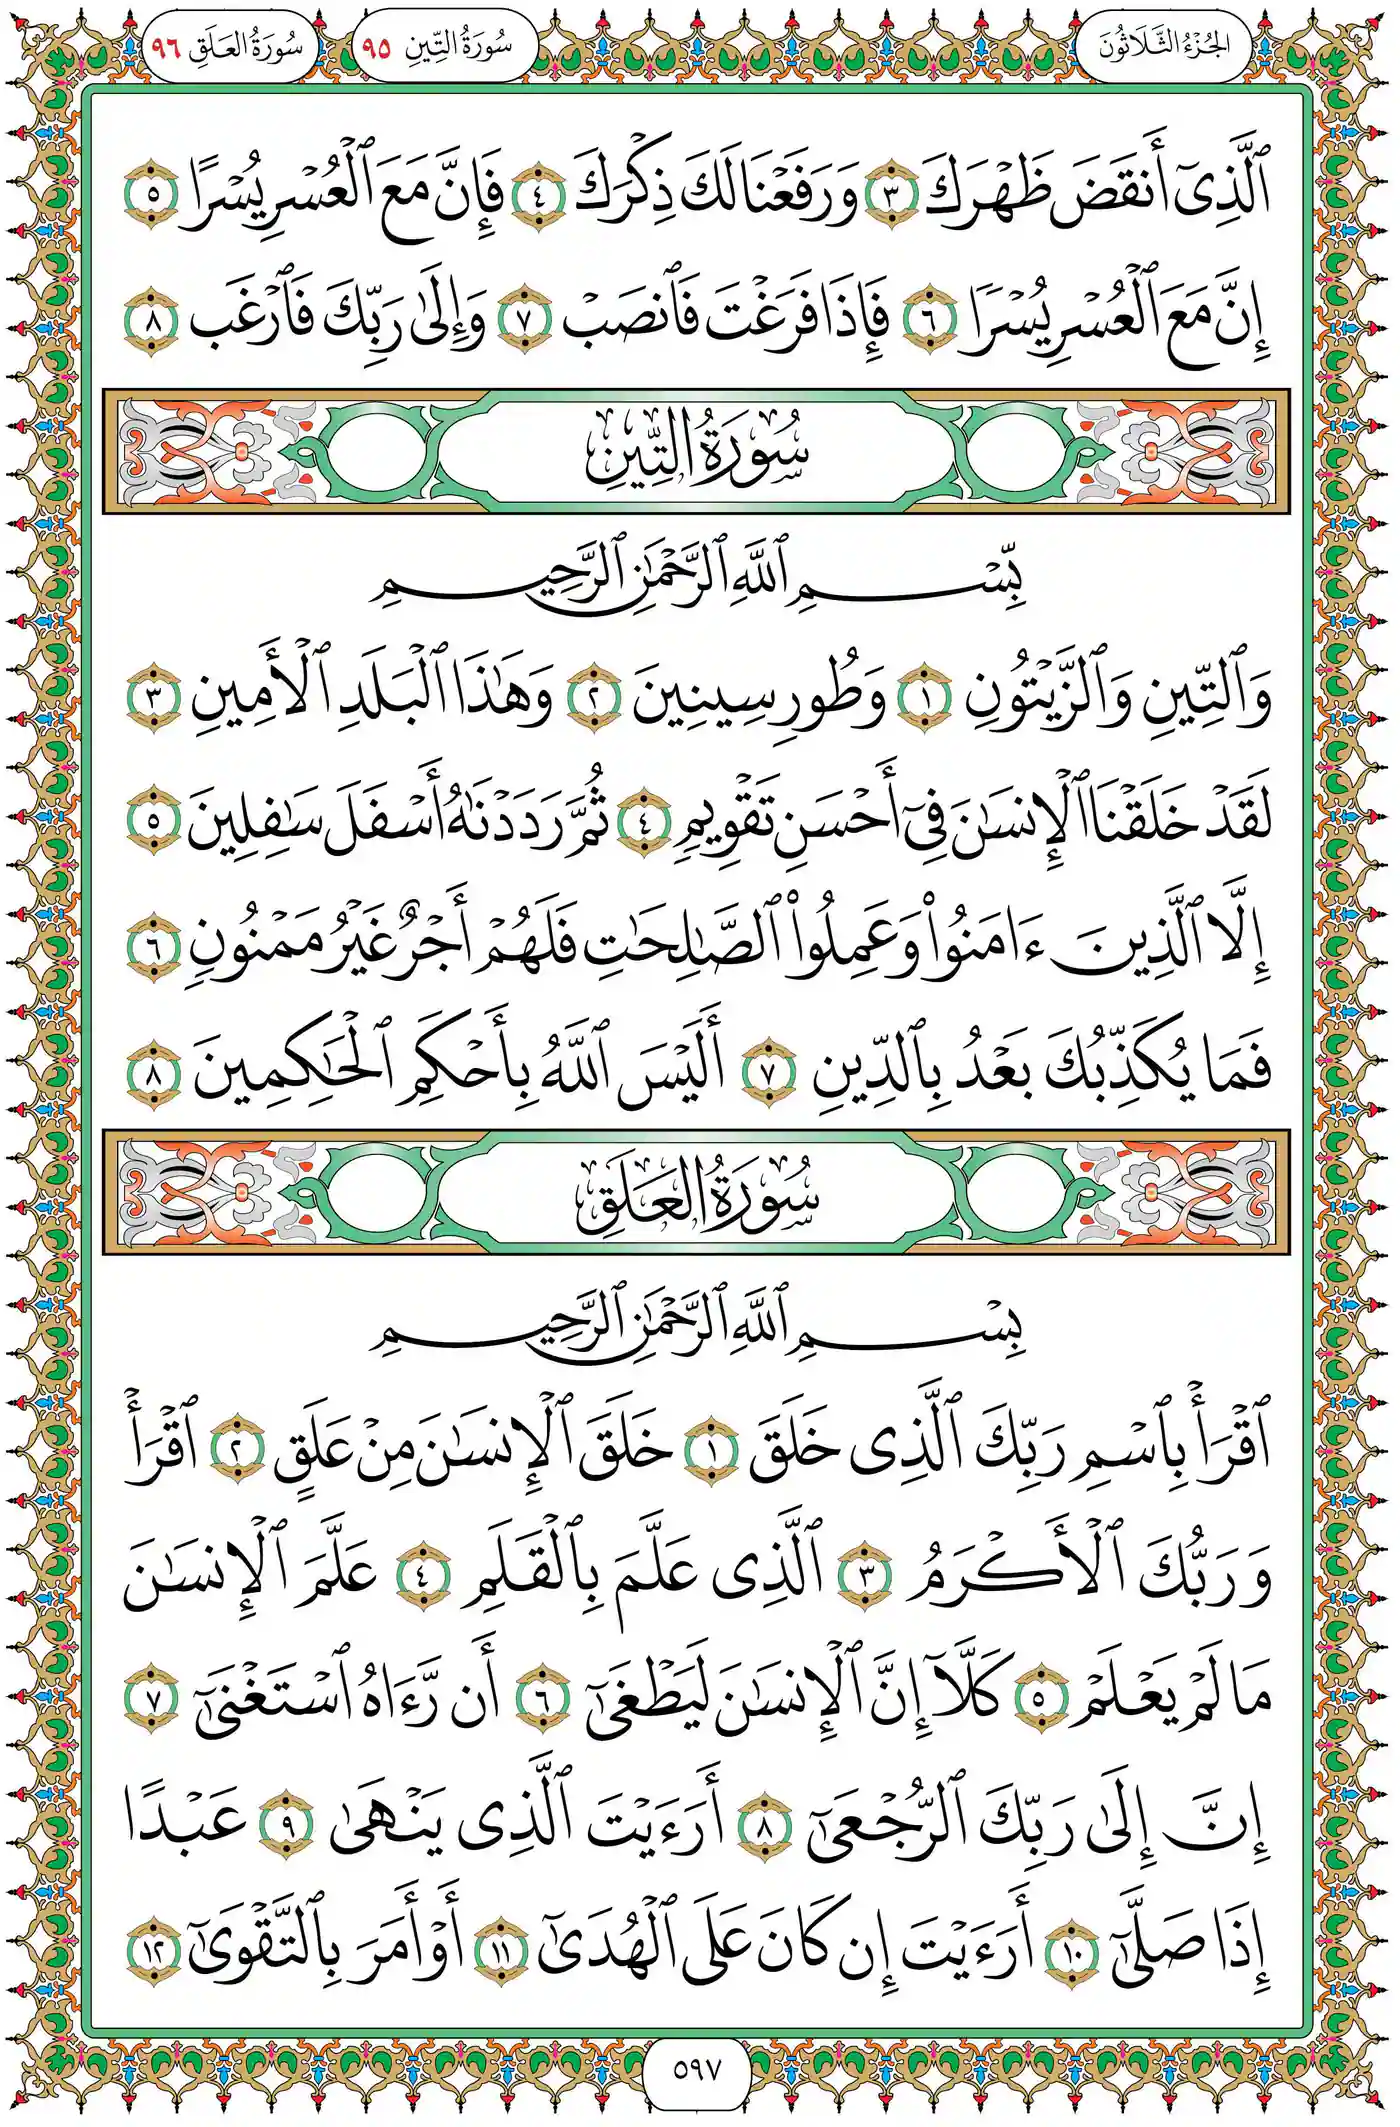 الجُزْءُ الثَّلَاثُونَ سُورَةُ التِّينِ ٩٥ سُورَةُ العَلَقِ ٩٦
ٱلَّذِىٓ أَنقَضَ ظَهْرَكَ ٣ وَرَفَعْنَا لَكَ ذِكْرَكَ ٤ فَإِنَّ مَعَ ٱلْعُسْرِ يُسْرًا ٥
إِنَّ مَعَ ٱلْعُسْرِ يُسْرًا ٦ فَإِذَا فَرَغْتَ فَٱنصَبْ ٧ وَإِلَىٰ رَبِّكَ فَٱرْغَب ٨
سُورَةُ التِّينِ
بِّسْمِ ٱللَّهِ ٱلرَّحْمَٰنِ ٱلرَّحِيمِ
وَٱلتِّينِ وَٱلزَّيْتُونِ ١ وَطُورِ سِينِينَ ٢ وَهَٰذَا ٱلْبَلَدِ ٱلْأَمِينِ ٣
لَقَدْ خَلَقْنَا ٱلْإِنسَٰنَ فِىٓ أَحْسَنِ تَقْوِيمٍ ٤ ثُمَّ رَدَدْنَٰهُ أَسْفَلَ سَٰفِلِينَ ٥
إِلَّا ٱلَّذِينَ ءَامَنُوا۟ وَعَمِلُوا۟ ٱلصَّٰلِحَٰتِ فَلَهُمْ أَجْرٌ غَيْرُ مَمْنُونٍ ٦
فَمَا يُكَذِّبُكَ بَعْدُ بِٱلدِّينِ ٧ أَلَيْسَ ٱللَّهُ بِأَحْكَمِ ٱلْحَٰكِمِينَ ٨
سُورَةُ العَلَقِ
بِسْمِ ٱللَّهِ ٱلرَّحْمَٰنِ ٱلرَّحِيمِ
ٱقْرَأْ بِٱسْمِ رَبِّكَ ٱلَّذِى خَلَقَ ١ خَلَقَ ٱلْإِنسَٰنَ مِنْ عَلَقٍ ٢ ٱقْرَأْ
وَرَبُّكَ ٱلْأَكْرَمُ ٣ ٱلَّذِى عَلَّمَ بِٱلْقَلَمِ ٤ عَلَّمَ ٱلْإِنسَٰنَ
مَا لَمْ يَعْلَمْ ٥ كَلَّآ إِنَّ ٱلْإِنسَٰنَ لَيَطْغَىٰٓ ٦ أَن رَّءَاهُ ٱسْتَغْنَىٰٓ ٧
إِنَّ إِلَىٰ رَبِّكَ ٱلرُّجْعَىٰٓ ٨ أَرَءَيْتَ ٱلَّذِى يَنْهَىٰ ٩ عَبْدًا
إِذَا صَلَّىٰٓ ١٠ أَرَءَيْتَ إِن كَانَ عَلَى ٱلْهُدَىٰٓ ١١ أَوْ أَمَرَ بِٱلتَّقْوَىٰٓ ١٢
٥٩٧